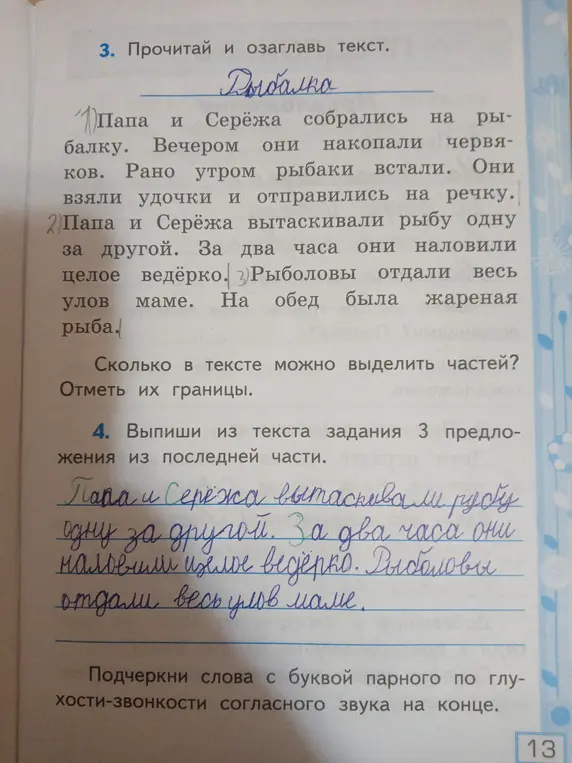 3. Прочитай и озаглавь текст.
Рыбалка
1) Папа и Серёжа собрались на ры-
балку. Вечером они накопали червя-
ков. Рано утром рыбаки встали. Они
взяли удочки и отправились на речку.|
2) Папа и Серёжа вытаскивали рыбу одну
за другой. За два часа они наловили
целое ведёрко.| 3) Рыболовы отдали весь
улов маме. На обед была жареная
рыба.|
Сколько в тексте можно выделить частей?
Отметь их границы.
4. Выпиши из текста задания 3 предло-
жения из последней части.
Папа и Серёжа вытаскивали рыбу
одну за другой. За два часа они
наловили целое ведёрко. Рыболовы
отдали весь улов маме.
Подчеркни слова с буквой парного по глу-
хости-звонкости согласного звука на конце.
13